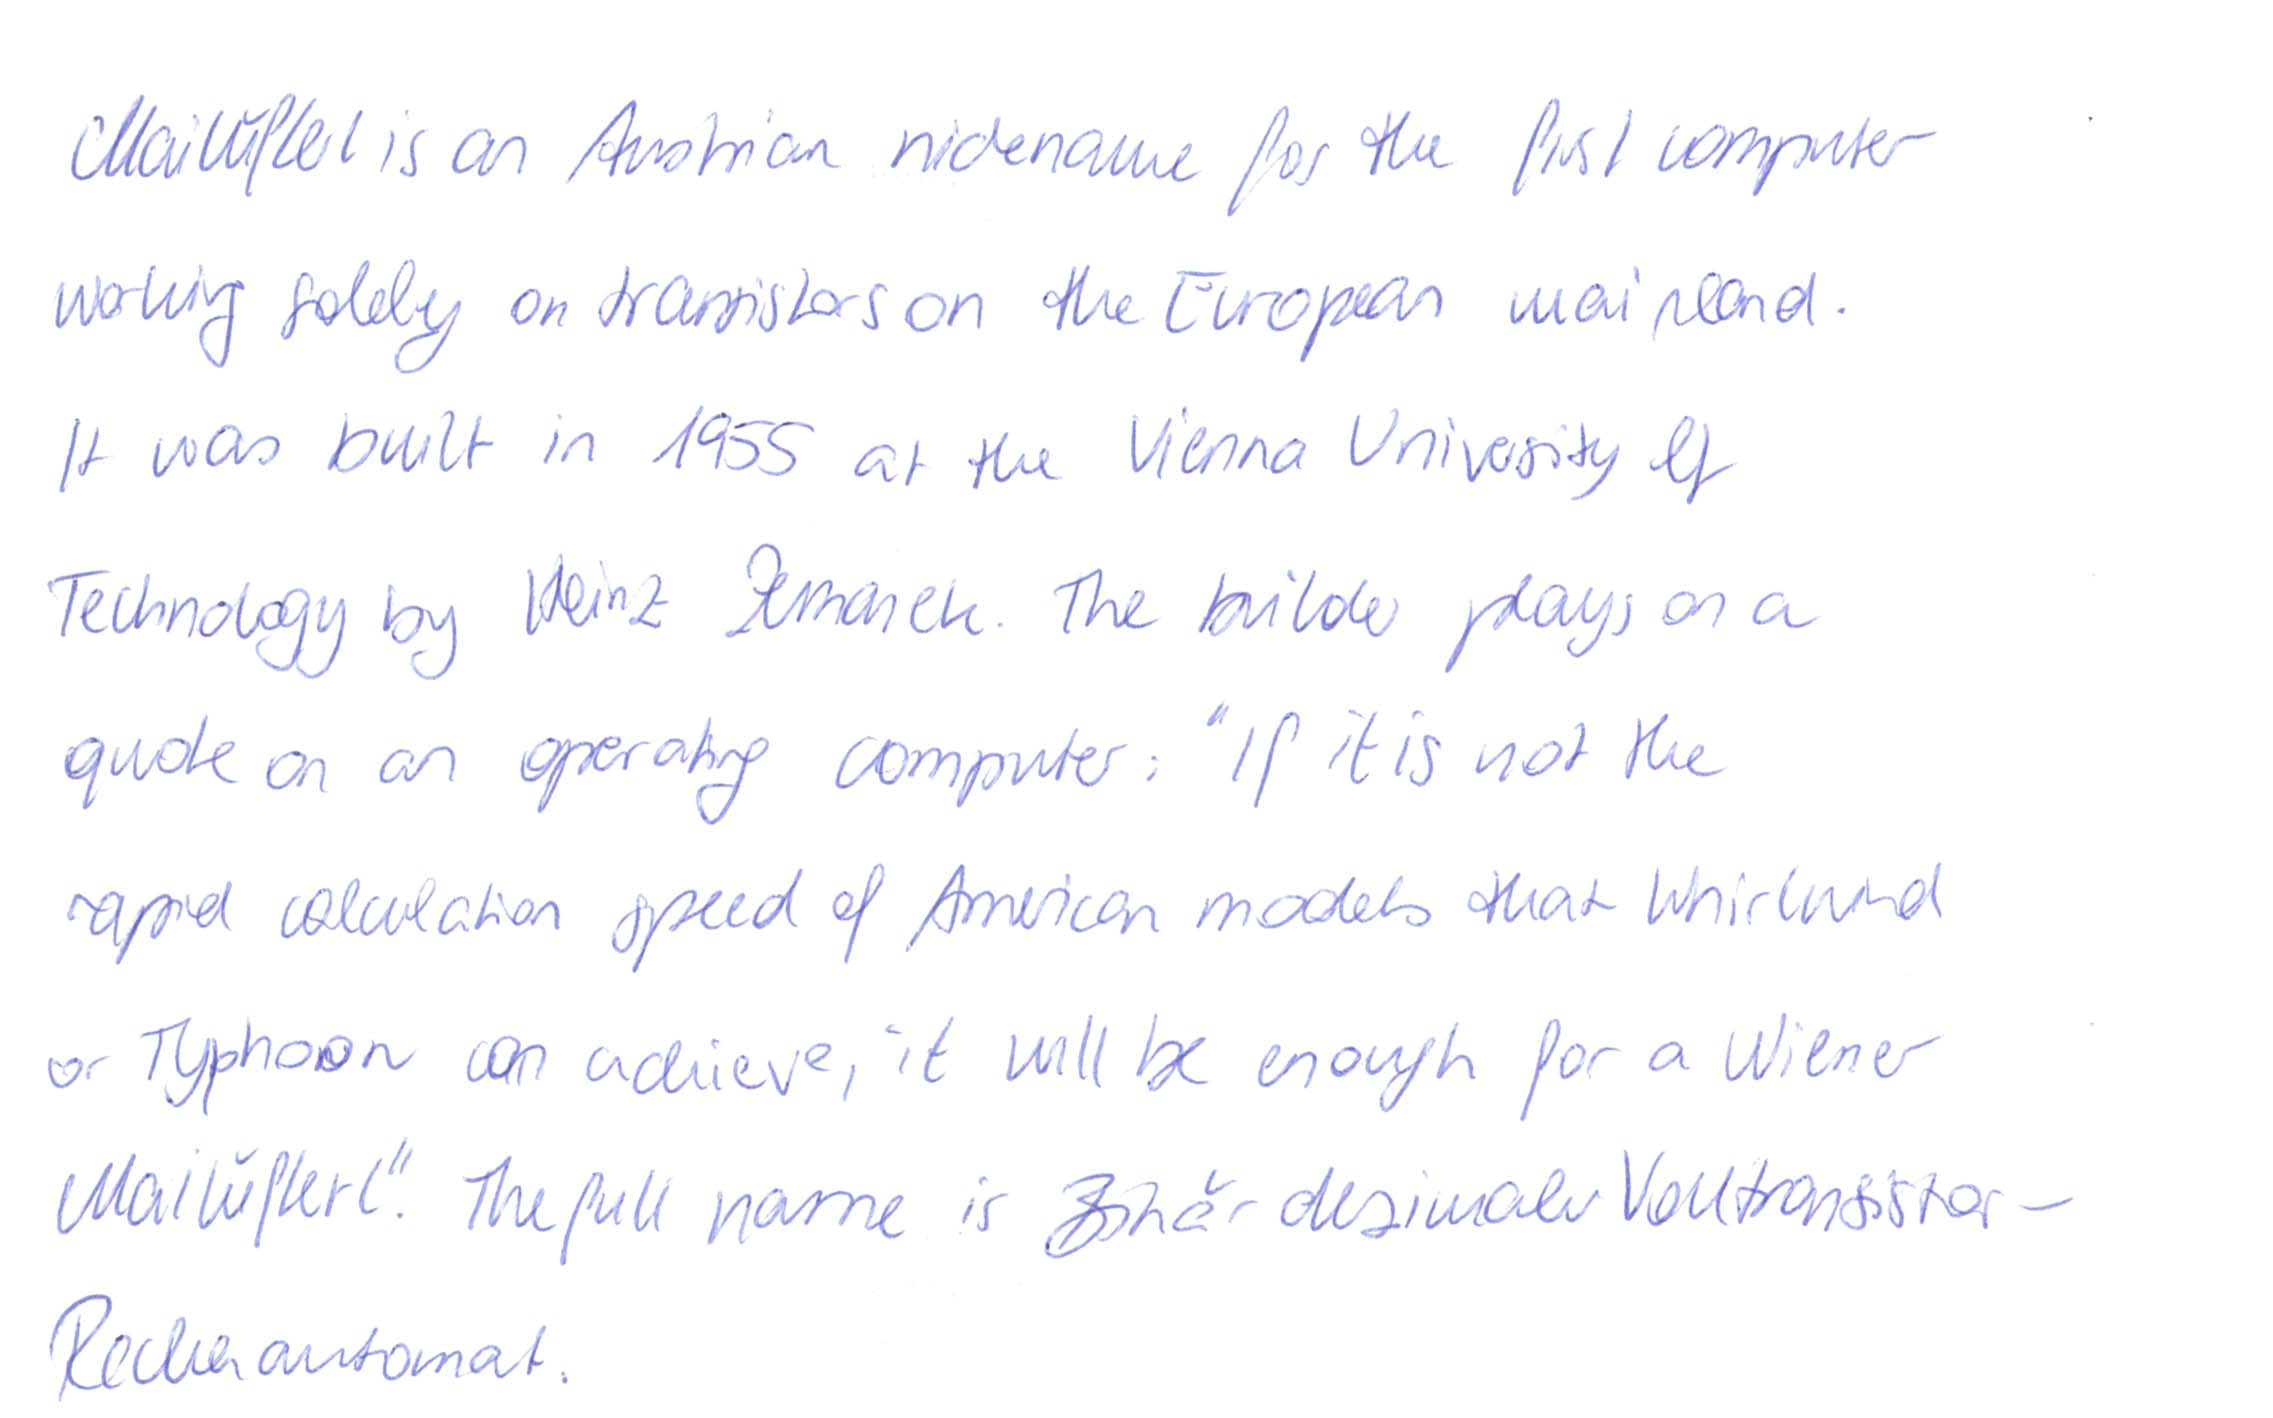 Mailüfterl is an Austrian nickname for the first computer
working solely on transistors on the European mainland.
It was built in 1955 at the Vienna University of
Technology by Heinz Zemanek. The builder plays on a
quote on an operating computer: "If it is not the
rapid calculation speed of American models that Whirlwind
or Typhoon can achieve, it will be enough for a Wiener
Mailüfterl". The full name is Binär dezimaler Volltransistor-
Rechenautomat.